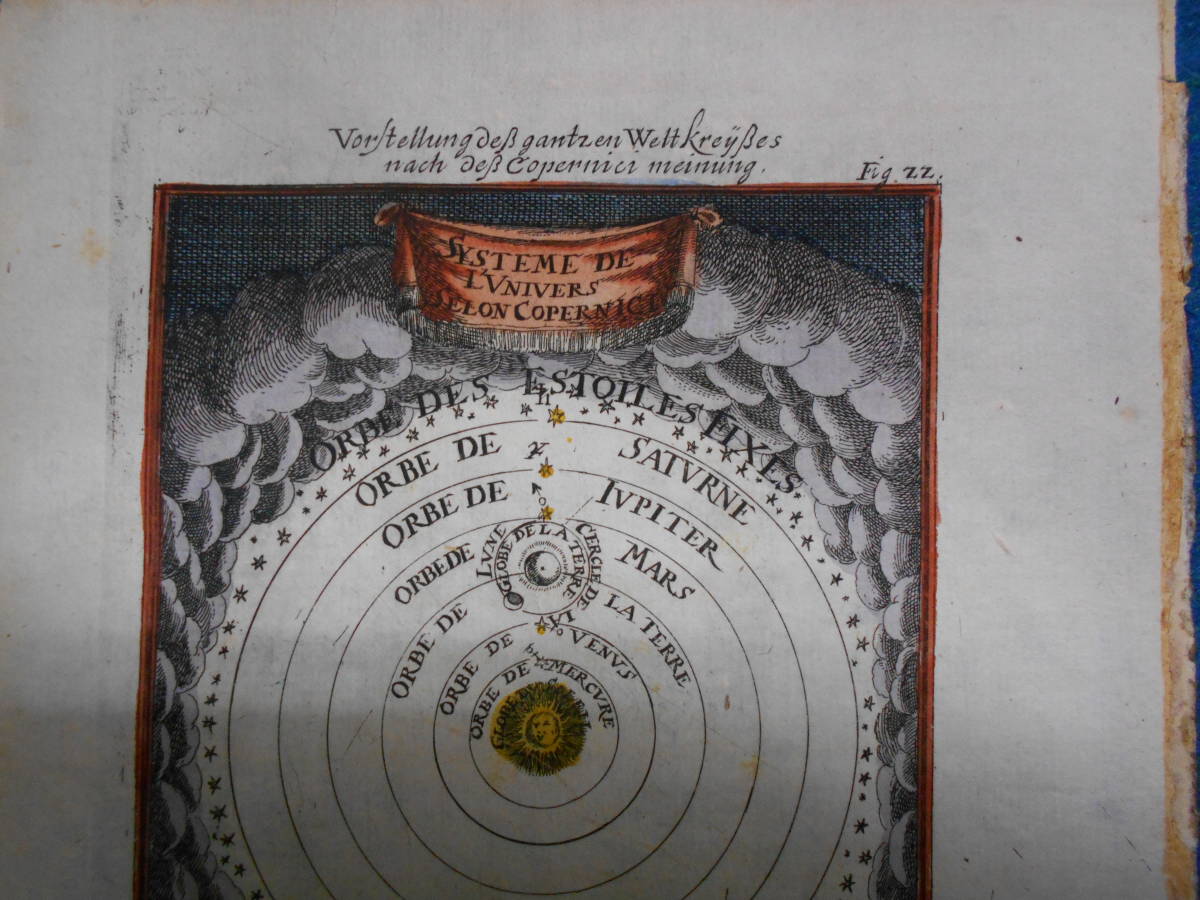 Vorstellung deß gantzen Weltkreÿßes
nach deß Copernici meinung.
Fig. 22.
SYSTEME DE
L'VNIVERS
SELON COPERNIC
ORBE DES ESTOILES FIXES
ORBE DE SATVRNE
ORBE DE IVPITER
ORBE DE MARS
CERCLE DE LA LUNE
GLOBE DE LA TERRE
ORBE DE LA TERRE
ORBE DE VENVS
ORBE DE MERCVRE
GLOBE DU SOLEIL